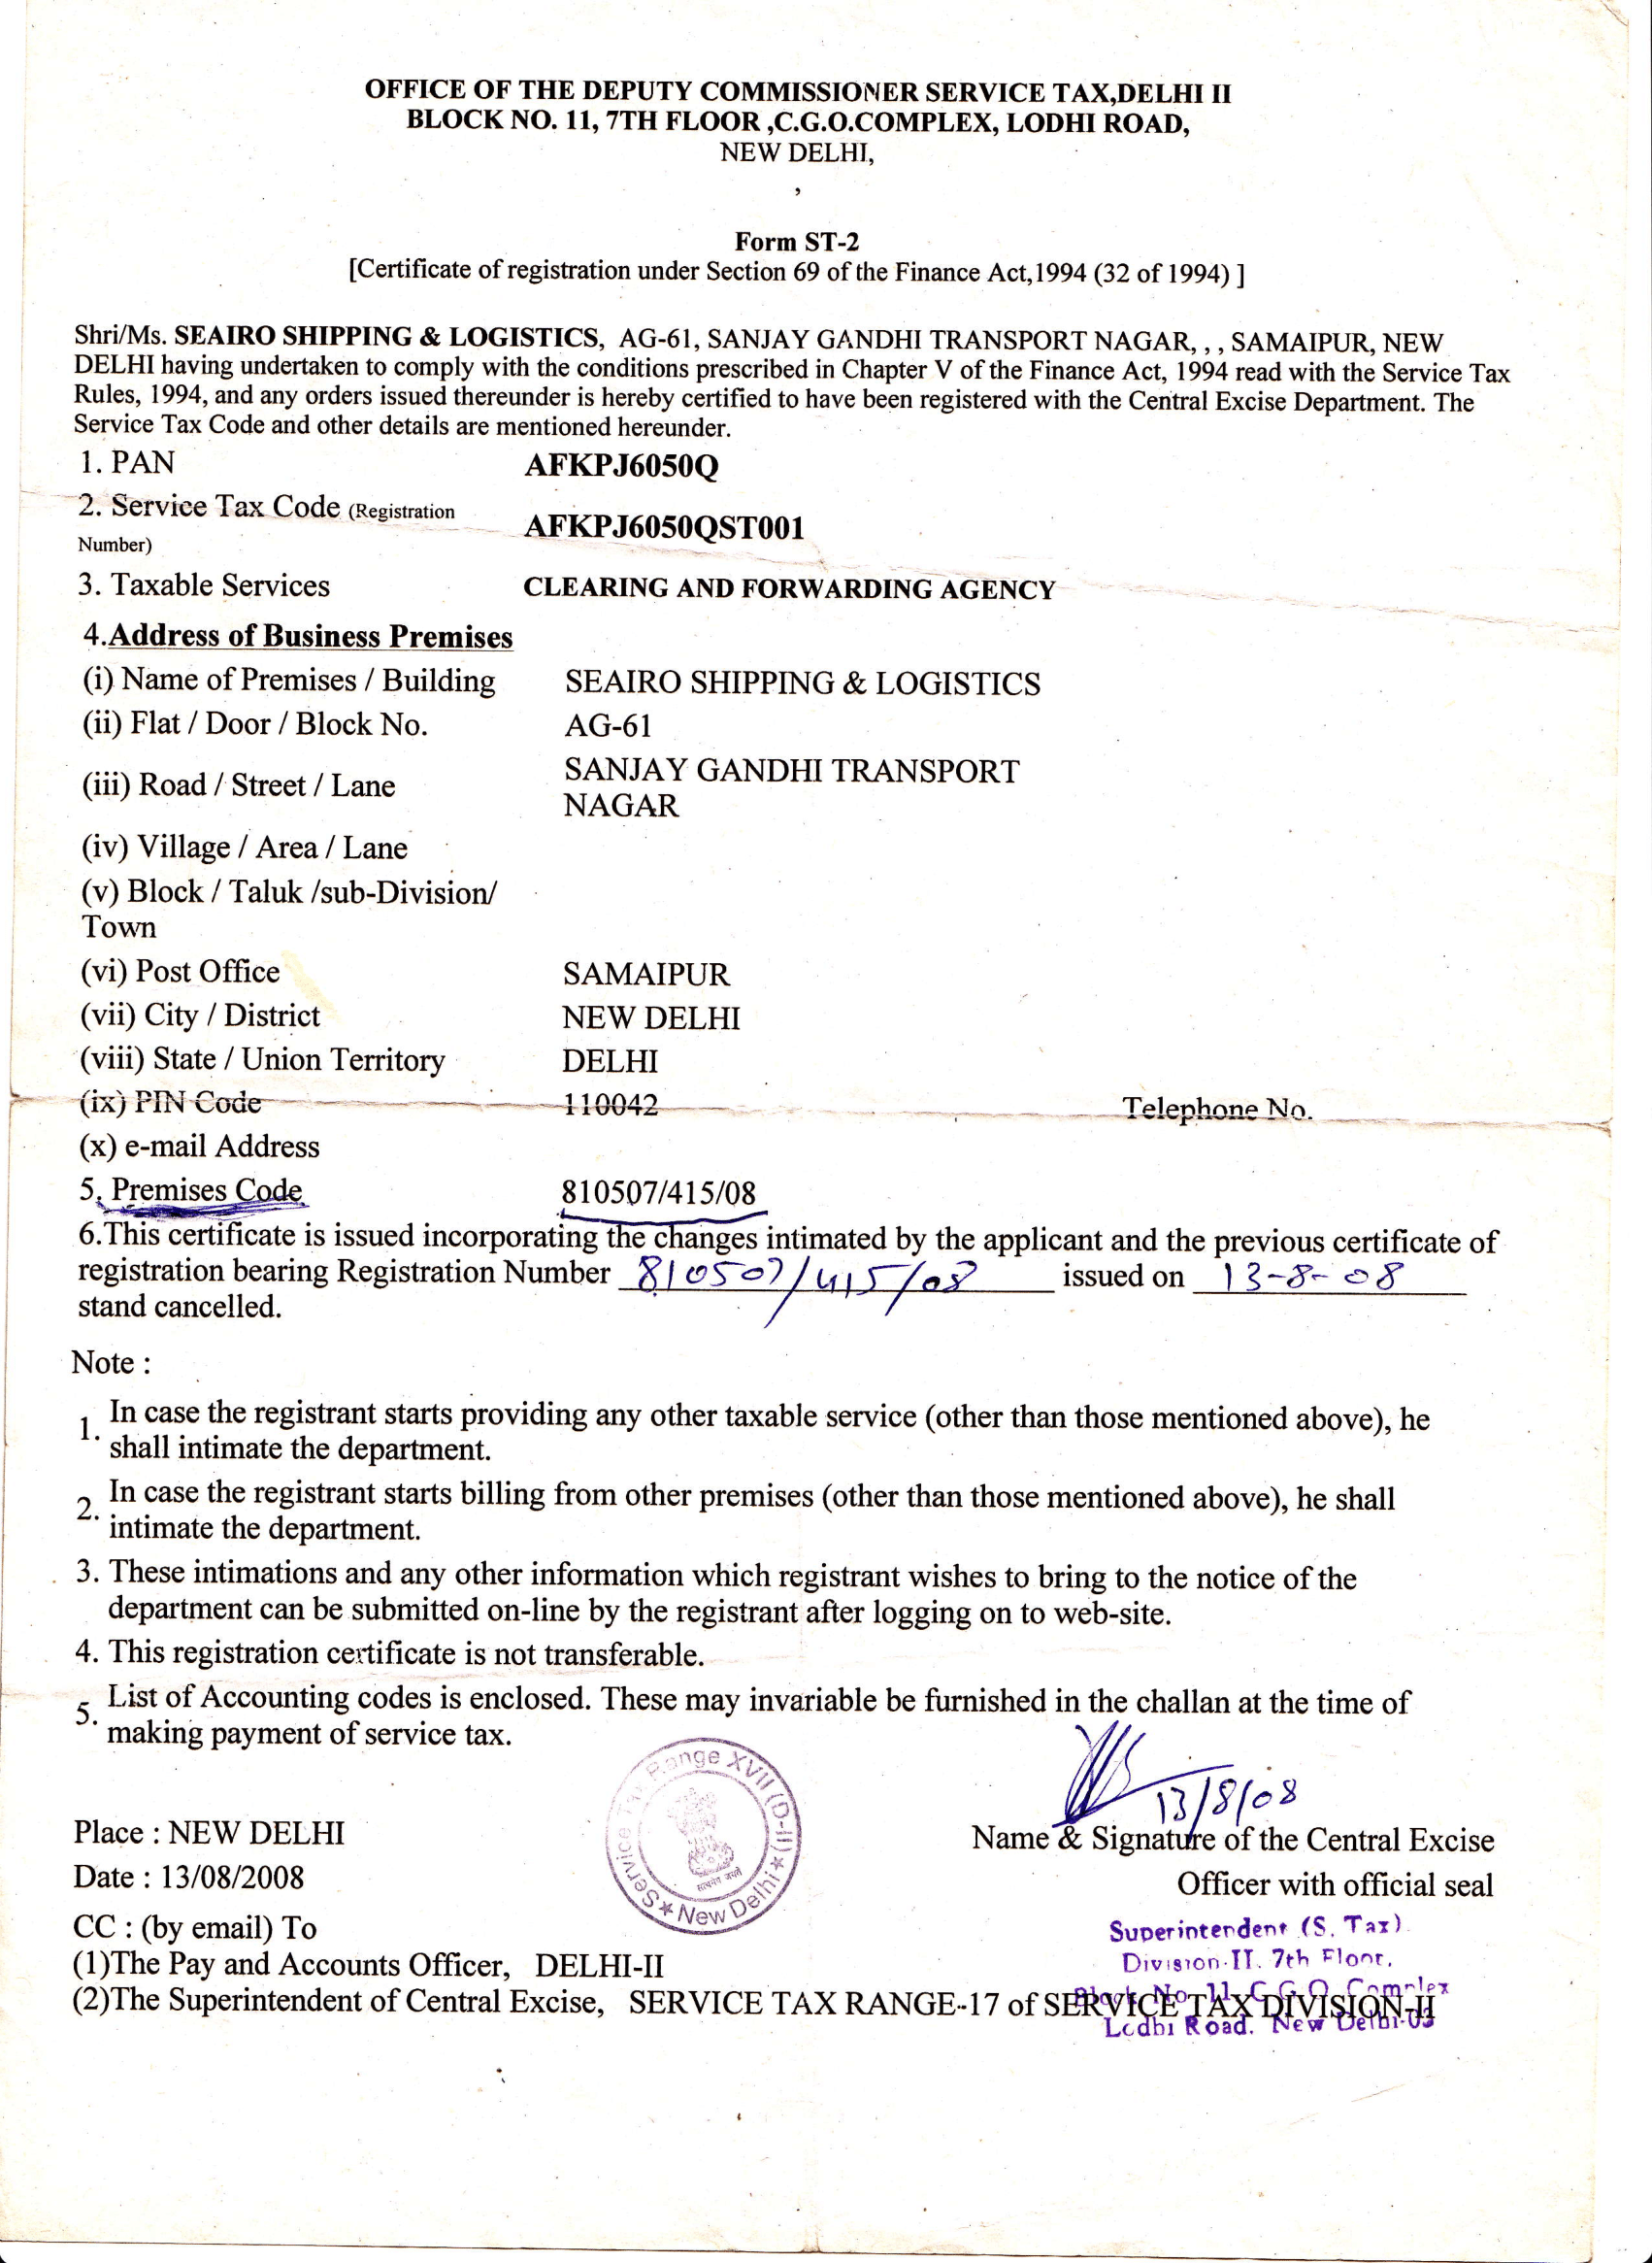 OFFICE OF THE DEPUTY COMMISSIONER SERVICE TAX,DELHI II
BLOCK NO. 11, 7TH FLOOR ,C.G.O.COMPLEX, LODHI ROAD,
NEW DELHI,
,
Form ST-2
[Certificate of registration under Section 69 of the Finance Act,1994 (32 of 1994) ]
Shri/Ms. SEAIRO SHIPPING & LOGISTICS, AG-61, SANJAY GANDHI TRANSPORT NAGAR, , , SAMAIPUR, NEW
DELHI having undertaken to comply with the conditions prescribed in Chapter V of the Finance Act, 1994 read with the Service Tax
Rules, 1994, and any orders issued thereunder is hereby certified to have been registered with the Central Excise Department. The
Service Tax Code and other details are mentioned hereunder.
1. PAN AFKPJ6050Q
2. Service Tax Code (Registration
Number) AFKPJ6050QST001
3. Taxable Services CLEARING AND FORWARDING AGENCY
4.Address of Business Premises
(i) Name of Premises / Building SEAIRO SHIPPING & LOGISTICS
(ii) Flat / Door / Block No. AG-61
(iii) Road / Street / Lane SANJAY GANDHI TRANSPORT
NAGAR
(iv) Village / Area / Lane
(v) Block / Taluk /sub-Division/
Town
(vi) Post Office SAMAIPUR
(vii) City / District NEW DELHI
(viii) State / Union Territory DELHI
(ix) PIN Code 110042 Telephone No.
(x) e-mail Address
5. Premises Code 810507/415/08
6.This certificate is issued incorporating the changes intimated by the applicant and the previous certificate of
registration bearing Registration Number 810507/415/08 issued on 13-8-08
stand cancelled.
Note :
1. In case the registrant starts providing any other taxable service (other than those mentioned above), he
shall intimate the department.
2. In case the registrant starts billing from other premises (other than those mentioned above), he shall
intimate the department.
3. These intimations and any other information which registrant wishes to bring to the notice of the
department can be submitted on-line by the registrant after logging on to web-site.
4. This registration certificate is not transferable.
5. List of Accounting codes is enclosed. These may invariable be furnished in the challan at the time of
making payment of service tax.
Service Tax Range XVII (D-II)
New Delhi
सत्यमेव जयते
13/8/08
Place : NEW DELHI
Name & Signature of the Central Excise
Date : 13/08/2008
Officer with official seal
CC : (by email) To
Superintendent (S. Tax)
(1)The Pay and Accounts Officer, DELHI-II
Division-II. 7th Floor,
(2)The Superintendent of Central Excise, SERVICE TAX RANGE-17 of SERVICE TAX DIVISION-II
Block No. 11 C.G.O. Complex
Lodhi Road. New Delhi-03